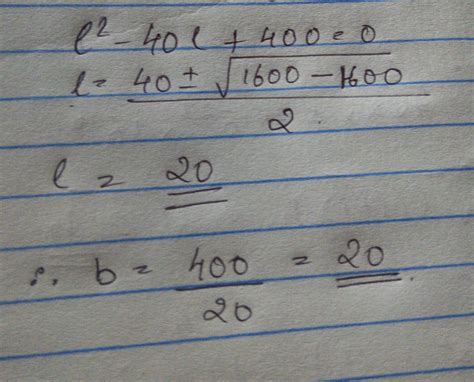 l² - 40l + 400 = 0
l = (40 ± √(1600 - 1600))/2.
l = 20
∴ b = 400/20 = 20.